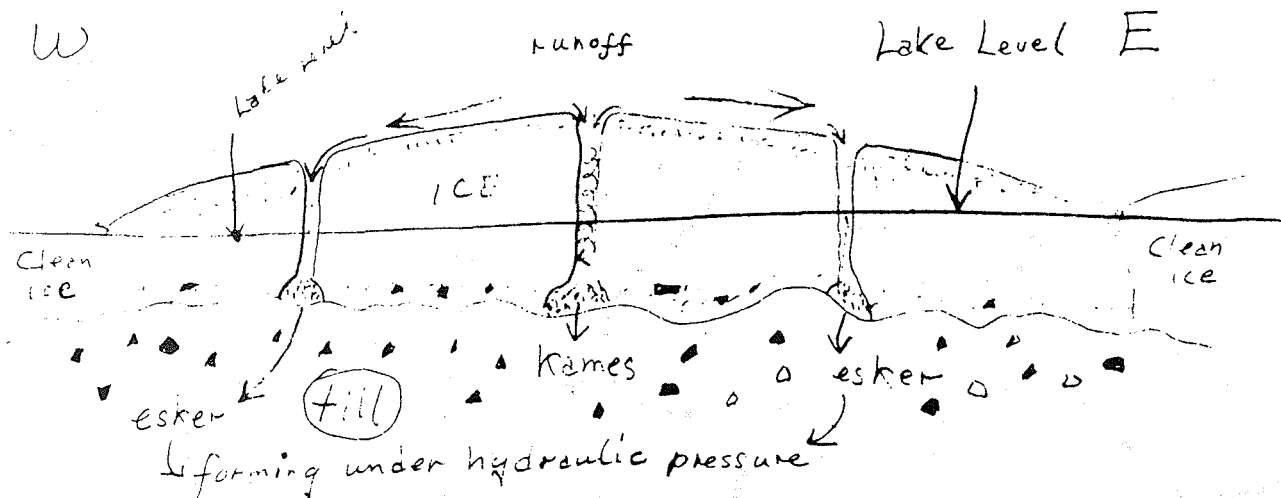 W
runoff
Lake Level E
Lake level
ICE
Clean
ice
Clean
ice
Kames
esker
esker
till
forming under hydraulic pressure